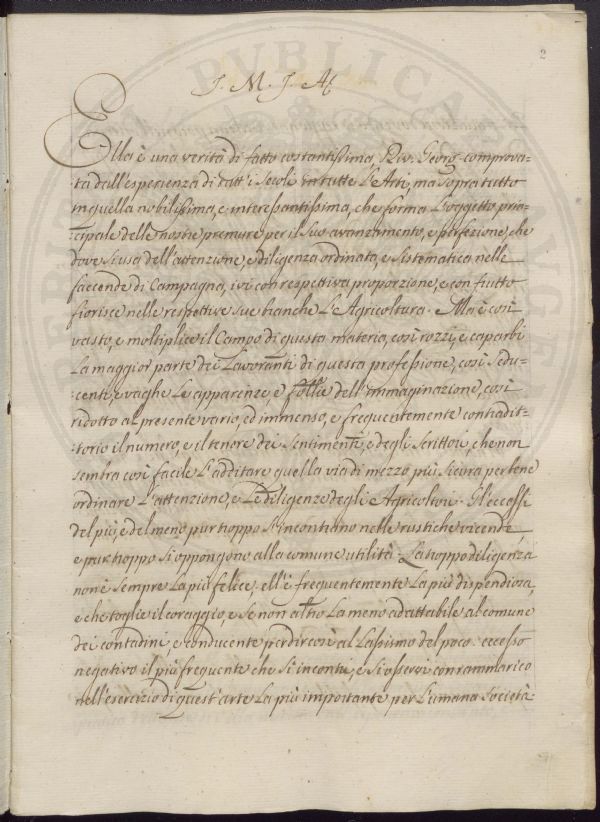 2
J. M. J. A.
Ella è una verità di fatto costantissima, Riv. Georg. comprova=
ta dall'esperienza di tutt'i Secoli in tutte L'Arti, ma sopra tutto
in quella nobilissima, e interessantissima, che forma L'oggetto prin=
cipale delle nostre premure per il suo avanzamento, e perfezione, che
dove si usa dell'attenzione, e diligenza ordinata, e Sistematica nelle
faccende di Campagna, ivi con respettiva proporzione, e con frutto
fiorisce nelle respettive sue branche L'Agricoltura. Ma è così
vasto, e moltiplice il Campo di questa materia, così rozzi, e caparbi
La maggior parte dei Lavoranti di questa professione, così Sedu=
centi, e vaghe Le apparenze, e follie dell'immaginazione, così
ridotto al presente vario, ed immenso, e frequentemente contradit=
torio il numero, e il tenore dei Sentimenti, e degli Scrittori, che non
sembra così facile L'additare quella via di mezzo più sicura, per bene
ordinare L'attenzione, e Le diligenze degli Agricoltori. Gl'eccessi
del più, e del meno pur troppo S'incontrano nelle rustiche vicende,
e pur troppo Si oppongono alla comune utilità. La troppo diligenza
non è sempre La più felice. ell'è frequentemente La più dispendiosa,
e che toglie il coraggio, e se non altro La meno adattabile al comune
dei contadini, e conducente per dir così al Lassismo del poco. eccesso
negativo il più frequente che Si incontri, e si osservi con rammarico
nell'esercizio di quest'arte La più importante per L'umana Società.